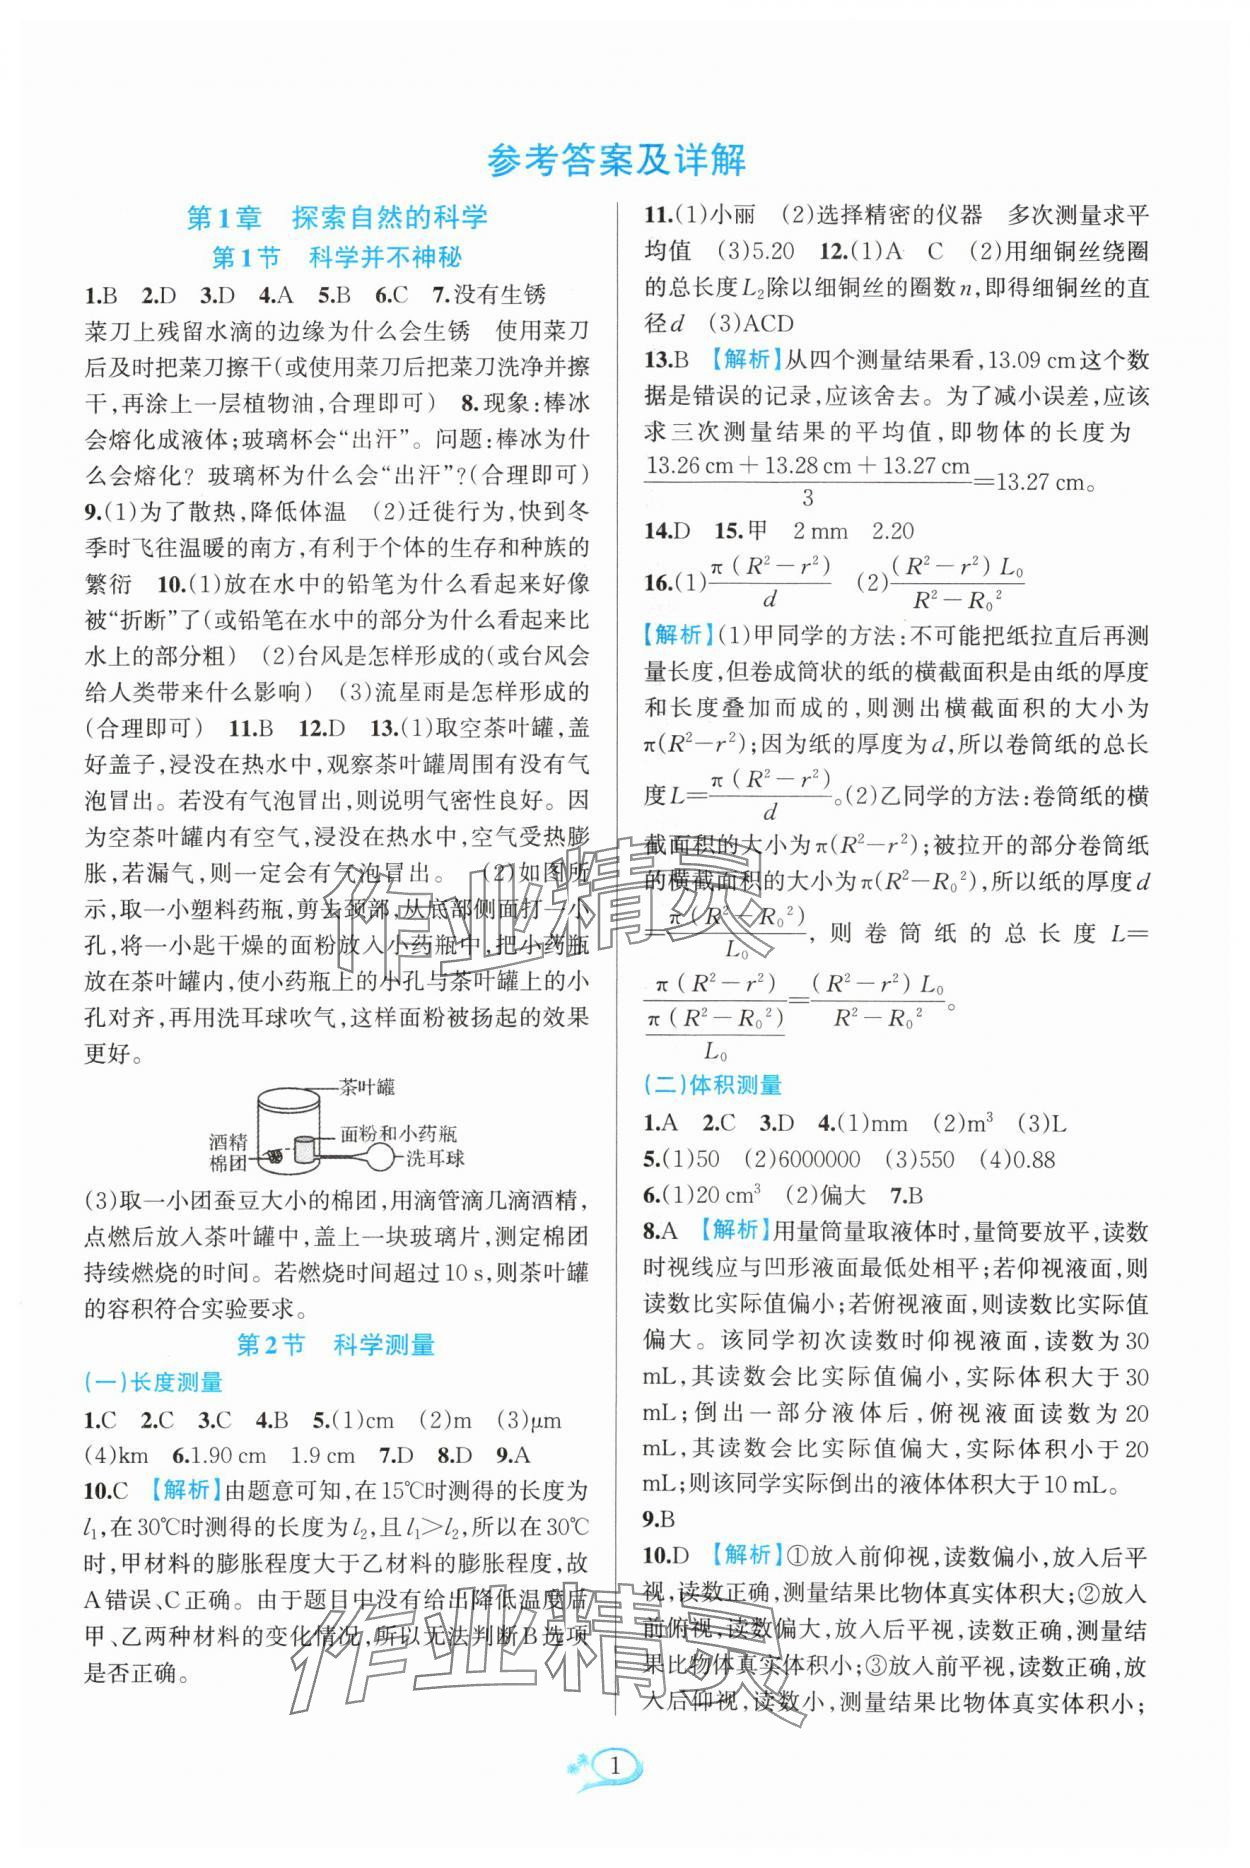 参考答案及详解
第1章　探索自然的科学
第1节　科学并不神秘
1.B　2.D　3.D　4.A　5.B　6.C　7.没有生锈
菜刀上残留水滴的边缘为什么会生锈　使用菜刀
后及时把菜刀擦干(或使用菜刀后把菜刀洗净并擦
干,再涂上一层植物油,合理即可)　8.现象:棒冰
会熔化成液体;玻璃杯会“出汗”。问题:棒冰为什
么会熔化？玻璃杯为什么会“出汗”?(合理即可)
9.(1)为了散热,降低体温　(2)迁徙行为,快到冬
季时飞往温暖的南方,有利于个体的生存和种族的
繁衍　10.(1)放在水中的铅笔为什么看起来好像
被“折断”了(或铅笔在水中的部分为什么看起来比
水上的部分粗)　(2)台风是怎样形成的(或台风会
给人类带来什么影响)　(3)流星雨是怎样形成的
(合理即可)　11.B　12.D　13.(1)取空茶叶罐,盖
好盖子,浸没在热水中,观察茶叶罐周围有没有气
泡冒出。若没有气泡冒出,则说明气密性良好。因
为空茶叶罐内有空气,浸没在热水中,空气受热膨
胀,若漏气,则一定会有气泡冒出。　(2)如图所
示,取一小塑料药瓶,剪去颈部,从底部侧面打一小
孔,将一小匙干燥的面粉放入小药瓶中,把小药瓶
放在茶叶罐内,使小药瓶上的小孔与茶叶罐上的小
孔对齐,再用洗耳球吹气,这样面粉被扬起的效果
更好。
茶叶罐
酒精
棉团
面粉和小药瓶
洗耳球
(3)取一小团蚕豆大小的棉团,用滴管滴几滴酒精,
点燃后放入茶叶罐中,盖上一块玻璃片,测定棉团
持续燃烧的时间。若燃烧时间超过10 s,则茶叶罐
的容积符合实验要求。
第2节　科学测量
(一)长度测量
1.C　2.C　3.C　4.B　5.(1)cm　(2)m　(3)μm
(4)km　6.1.90 cm　1.9 cm　7.D　8.D　9.A
10.C　【解析】由题意可知,在15℃时测得的长度为
l₁,在30℃时测得的长度为l₂,且l₁>l₂,所以在30℃
时,甲材料的膨胀程度大于乙材料的膨胀程度,故
A错误、C正确。由于题目中没有给出降低温度后
甲、乙两种材料的变化情况,所以无法判断B选项
是否正确。
11.(1)小丽　(2)选择精密的仪器　多次测量求平
均值　(3)5.20　12.(1)A　C　(2)用细铜丝绕圈
的总长度L₂除以细铜丝的圈数n,即得细铜丝的直
径d　(3)ACD
13.B　【解析】从四个测量结果看,13.09 cm这个数
据是错误的记录,应该舍去。为了减小误差,应该
求三次测量结果的平均值,即物体的长度为
(13.26 cm＋13.28 cm＋13.27 cm)/3=13.27 cm。
14.D　15.甲　2 mm　2.20
16.(1)π(R²−r²)/d　(2)(R²−r²)L₀/(R²−R₀²)
【解析】(1)甲同学的方法:不可能把纸拉直后再测
量长度,但卷成筒状的纸的横截面积是由纸的厚度
和长度叠加而成的,则测出横截面积的大小为
π(R²−r²);因为纸的厚度为d,所以卷筒纸的总长
度L=π(R²−r²)/d。(2)乙同学的方法:卷筒纸的横
截面积的大小为π(R²−r²);被拉开的部分卷筒纸
的横截面积的大小为π(R²−R₀²),所以纸的厚度d
=π(R²−R₀²)/L₀,则卷筒纸的总长度L=
π(R²−r²)/(π(R²−R₀²)/L₀)=(R²−r²)L₀/(R²−R₀²)。
(二)体积测量
1.A　2.C　3.D　4.(1)mm　(2)m³　(3)L
5.(1)50　(2)6000000　(3)550　(4)0.88
6.(1)20 cm³　(2)偏大　7.B
8.A　【解析】用量筒量取液体时,量筒要放平,读数
时视线应与凹形液面最低处相平;若仰视液面,则
读数比实际值偏小;若俯视液面,则读数比实际值
偏大。该同学初次读数时仰视液面,读数为30
mL,其读数会比实际值偏小,实际体积大于30
mL;倒出一部分液体后,俯视液面读数为20
mL,其读数会比实际值偏大,实际体积小于20
mL;则该同学实际倒出的液体体积大于10 mL。
9.B
10.D　【解析】①放入前仰视,读数偏小,放入后平
视,读数正确,测量结果比物体真实体积大;②放入
前俯视,读数偏大,放入后平视,读数正确,测量结
果比物体真实体积小;③放入前平视,读数正确,放
入后仰视,读数小,测量结果比物体真实体积小;
作业精灵
作业精灵
1